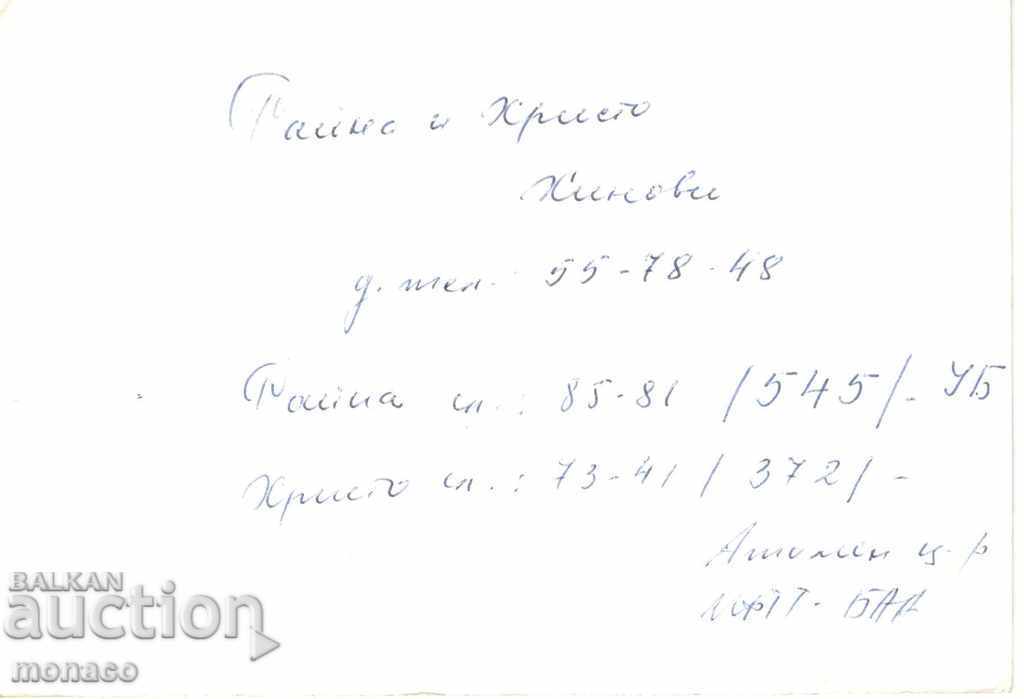 Райна и Христо
Хинови
д. тел.: 55-78-48
Райна сл.: 85-81 /545/- УБ
Христо сл.: 73-41 / 372/ -
Атомен ц-р
ИФТТ - БАН
BALKAN
auction
monaco